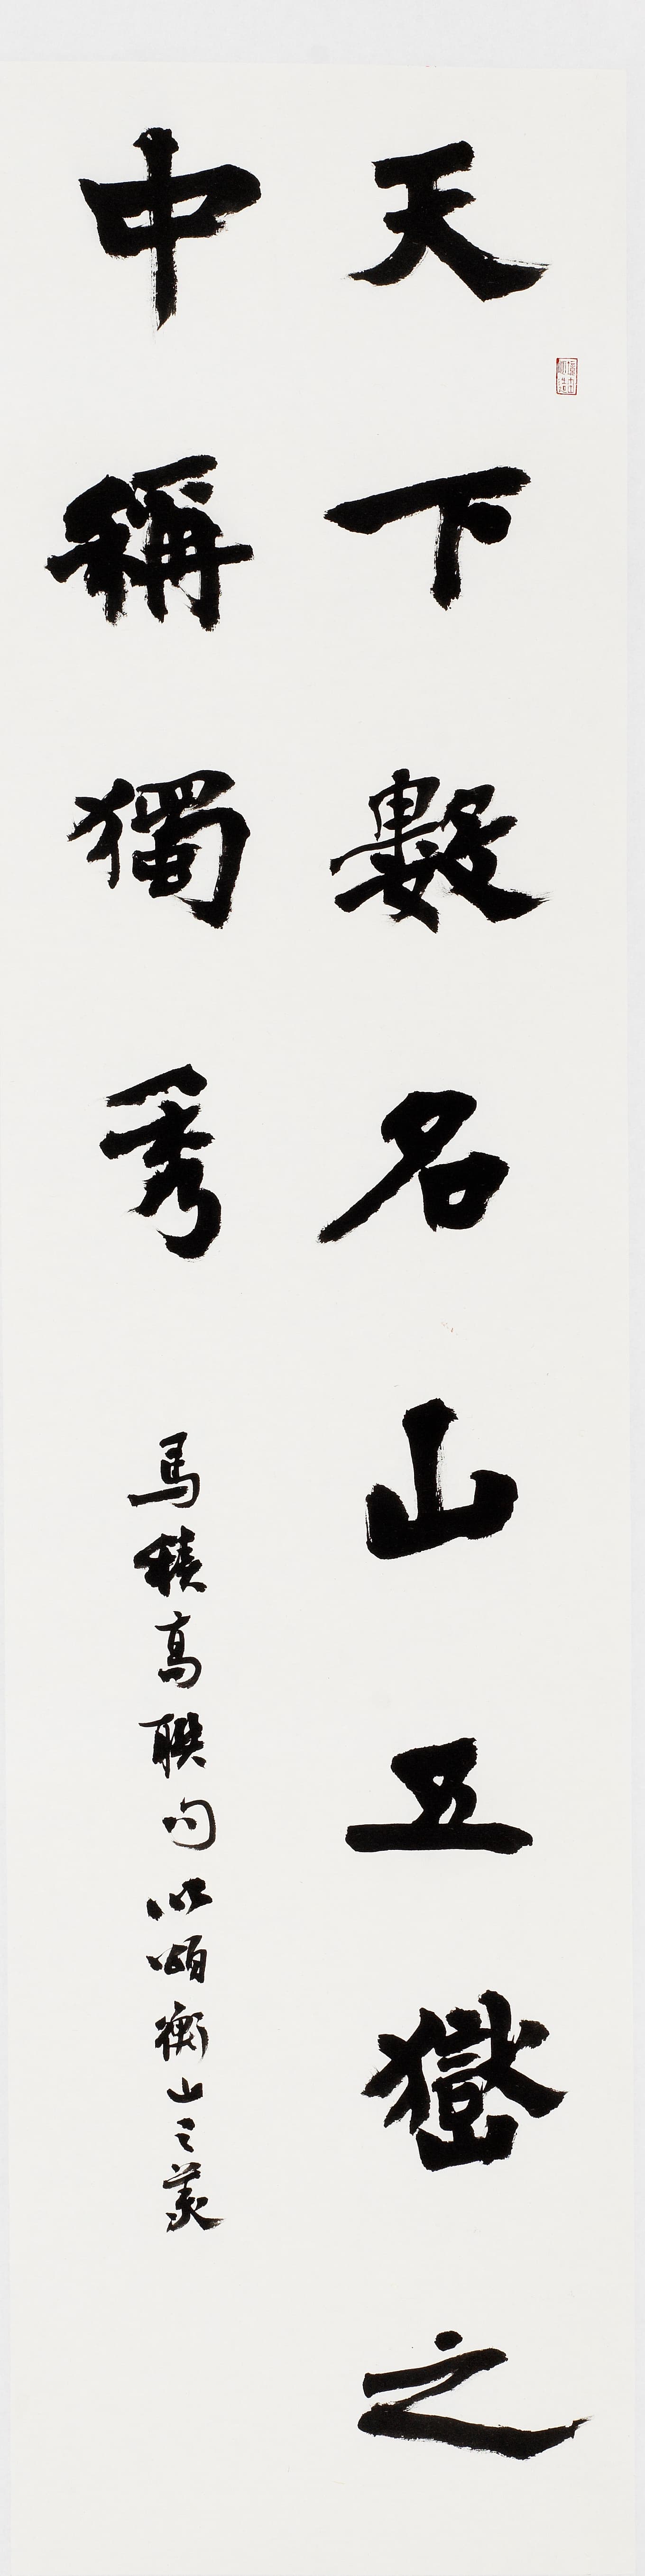 天下數名山五嶽之
中稱獨秀
馬積高聯句以頌衡山之美